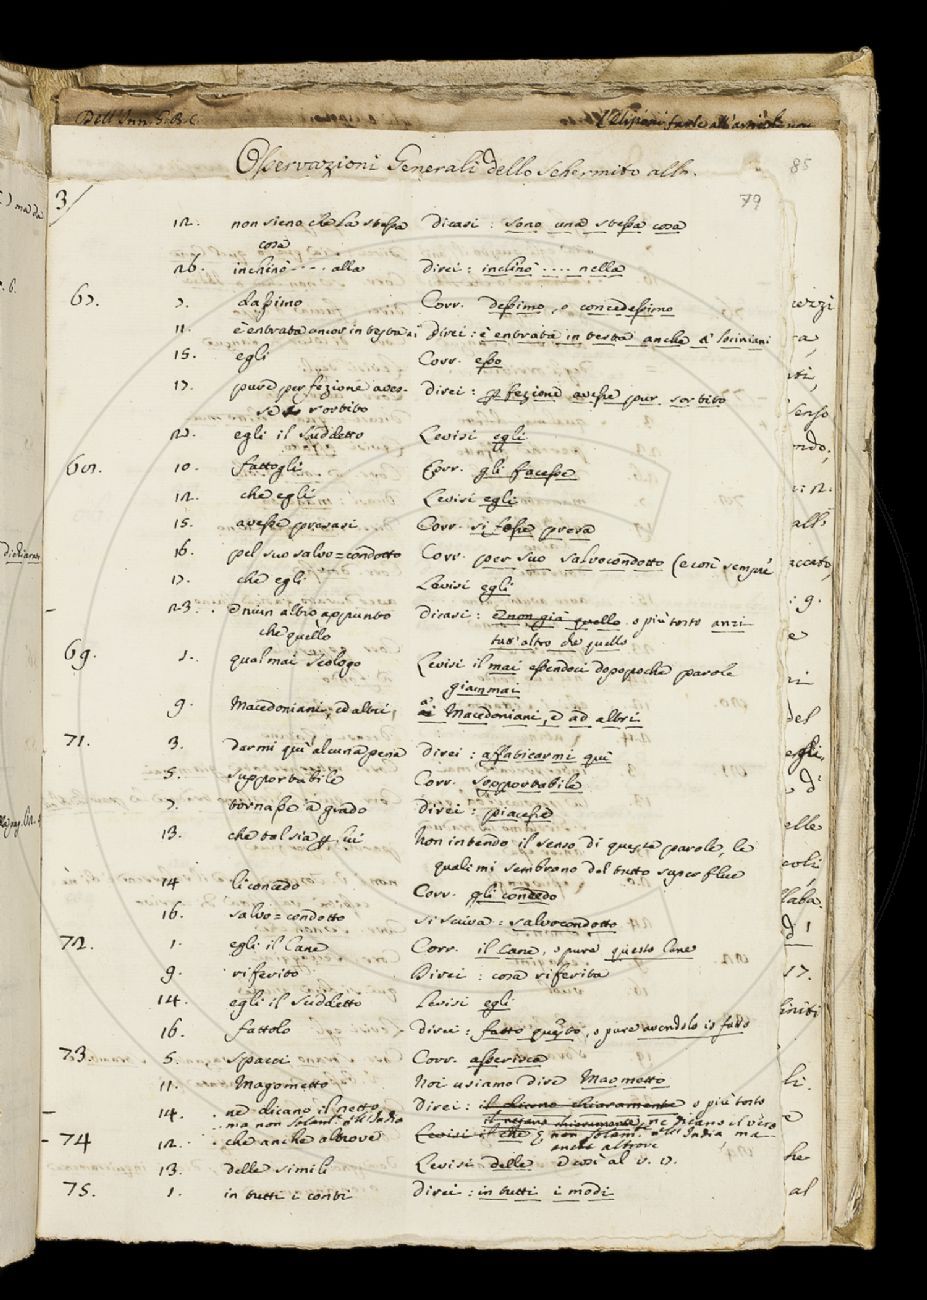 Dell' Inn. S. B. C.
Osservazioni Generali dello schermito all.
85
79
3
12. non sieno che la stessa Dicasi: sono una stessa cosa
cosa
26. inchinò .... alla Direi: inclinò .... nella
67. 7. dassimo Corr. dessimo, o concedessimo
11. è entrata ancor in testa ai Direi: è entrata in testa anche a' Sociniani
15. egli Corr. esso
17. pure perfezione aves- Direi: perfezione avesse pur sortito
se sortito
27. egli il suddetto Levisi egli
10. fattogli Corr. gli facesse
12. che egli Levisi egli
15. avesse presasi Corr. si fosse presa
16. pel suo salvo=condotto Corr. per suo salvocondotto (e così sempre
17. che egli Levisi egli
23. d'niun altro appunto Dicasi: e non già quello o più tosto anzi
che quello tutt'altro che quello
69. 1. qual mai Teologo Levisi il mai essendoci dopo poche parole
giammai
9. Macedoniani, ed altri, a' Macedoniani, e ad altri
71. 3. darmi quì alcuna pena Direi: affaticarmi quì
5. supportabile Corr. sopportabile
7. tornasse a grado Direi: piacesse
13. che tal sia per lui Non intendo il senso di queste parole, le
quali mi sembrono del tutto superflue
14 li concedo Corr. gli concedo
16. salvo=condotto si scriva: salvocondotto
72. 1. egli il Cane Corr. il Cane, o pure questo Cane
9. riferito Direi: cosa riferita
14. egli il suddetto Levisi egli
16. fattolo Direi: fatto questo, o pure avendolo io fatto
73 5. spacci Corr. asserisca
11. Magometto Noi usiamo dire Maometto
14. ne dicano il netto Direi: il dicono chiaramente o più tosto
ma non solam. nell' India il negano chiaramente, ne dicano il vero
74 12. che anche altrove Levisi il che e non solam. nell' India ma
anche altrove
13. delle simili Levisi delle e così al v. 17.
75. 1. in tutti i conti Direi: in tutti i modi